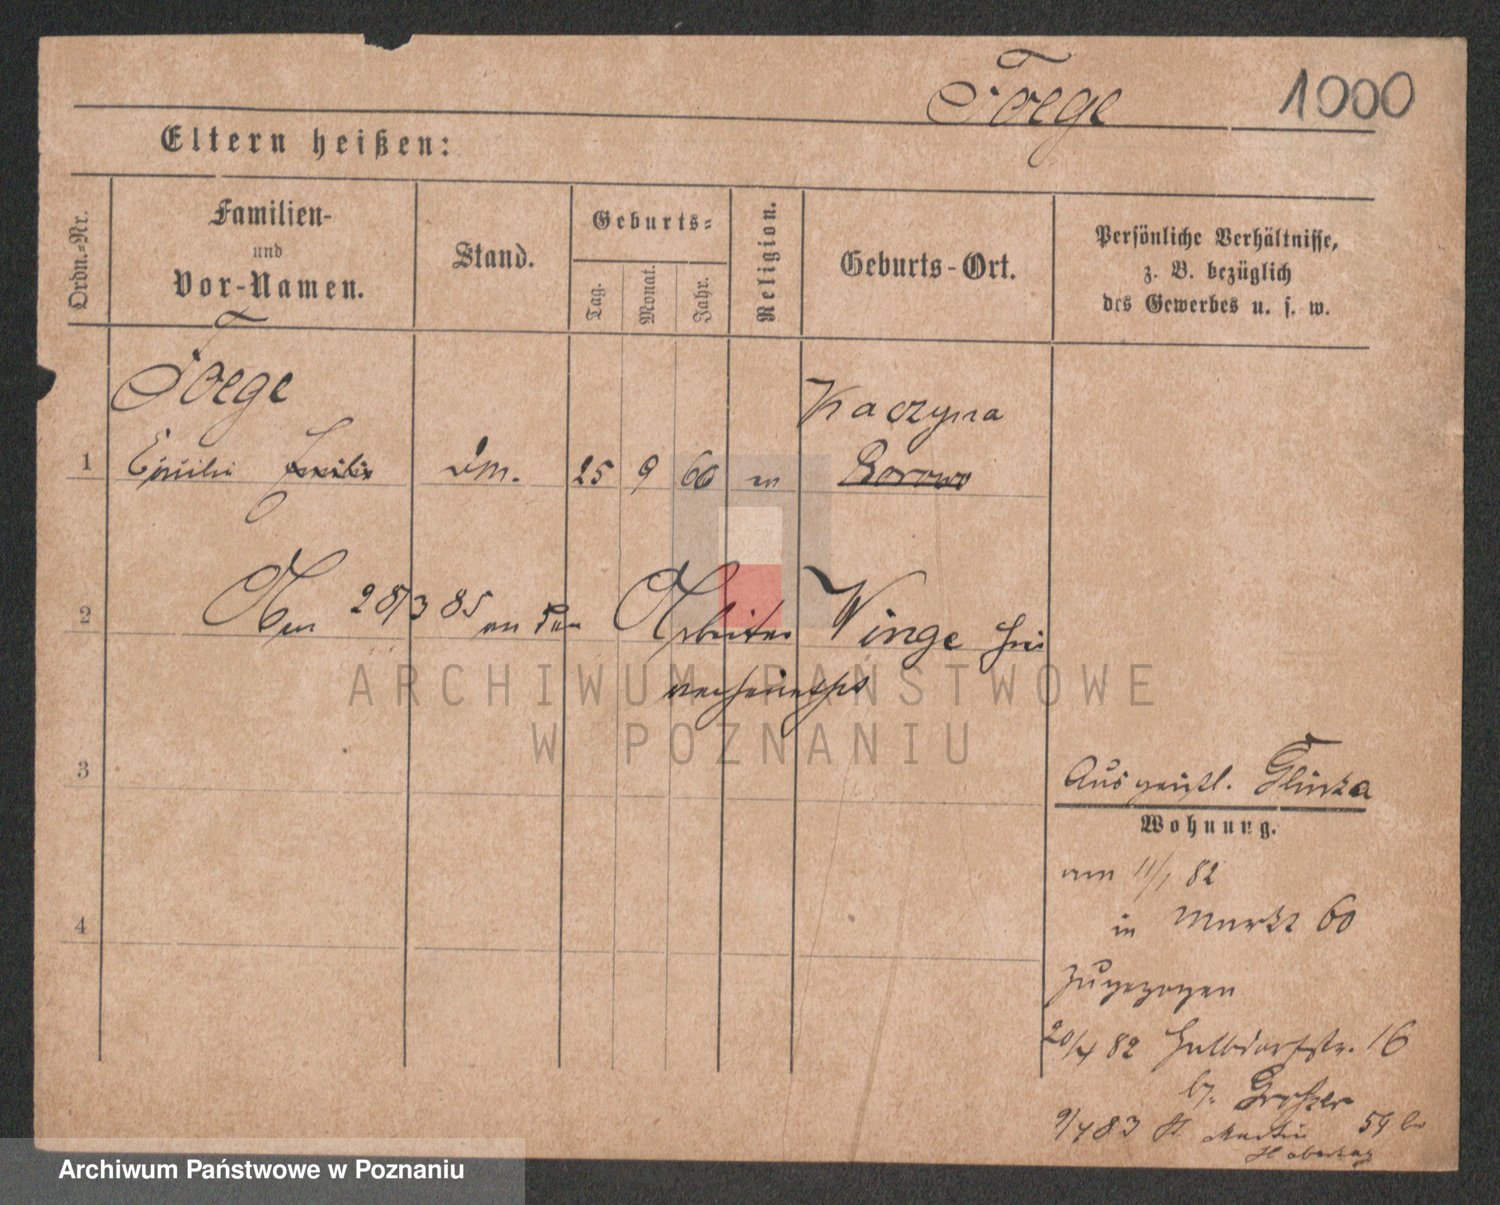 Foege 1000
Eltern heißen:
Ordn.=Nr.
Familien-
und
Vor-Namen.
Stand.
Geburts=
Tag.
Monat.
Jahr.
Religion.
Geburts-Ort.
Persönliche Verhältnisse,
z. B. bezüglich
des Gewerbes u. s. w.
Foege Kaczyna
1 Emilie Emilie 25 9 60 Borowo
2 28/3 85 an den Arbeiter Winge hier
verheirathet
3
Glinka
Wohnung.
am 11/1 82
in Markt 60
zugezogen
20/4 82 Halbdorfstr. 16
b. Grosser
9/4 83 St Martin 59 bei
4
ARCHIWUM PAŃSTWOWE
W POZNANIU
Archiwum Państwowe w Poznaniu